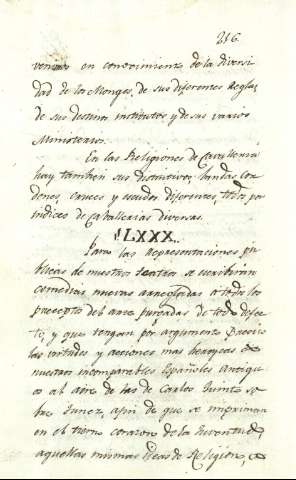 216.
venimos en conocimiento de la diversi
dad de los Monges, de sus diferentes Reglas
de sus destinos institutos y de sus varios
Ministerios.
En las Religiones de Cavalleria
hay tambien sus distintivos, bandas Cor
dones, cruces y escudos diferentes, todos por
indices de Caballerias diversas.
LXXX.
Para las representaciones pu
blicas de nuestros teatros se escribirán
comedias nuevas arregladas a todos los
preceptos del arte purgadas de todo defec
to, y que tengan por argumento preciso
las virtudes y acciones mas heroycas de
nuestros incomparables Españoles antigu
os al aire de las de Carlos Quinto so
bre Tunez, afin de que se impriman
en el tierno corazon de la Juventud,
aquellas mismas ideas de Religion, de